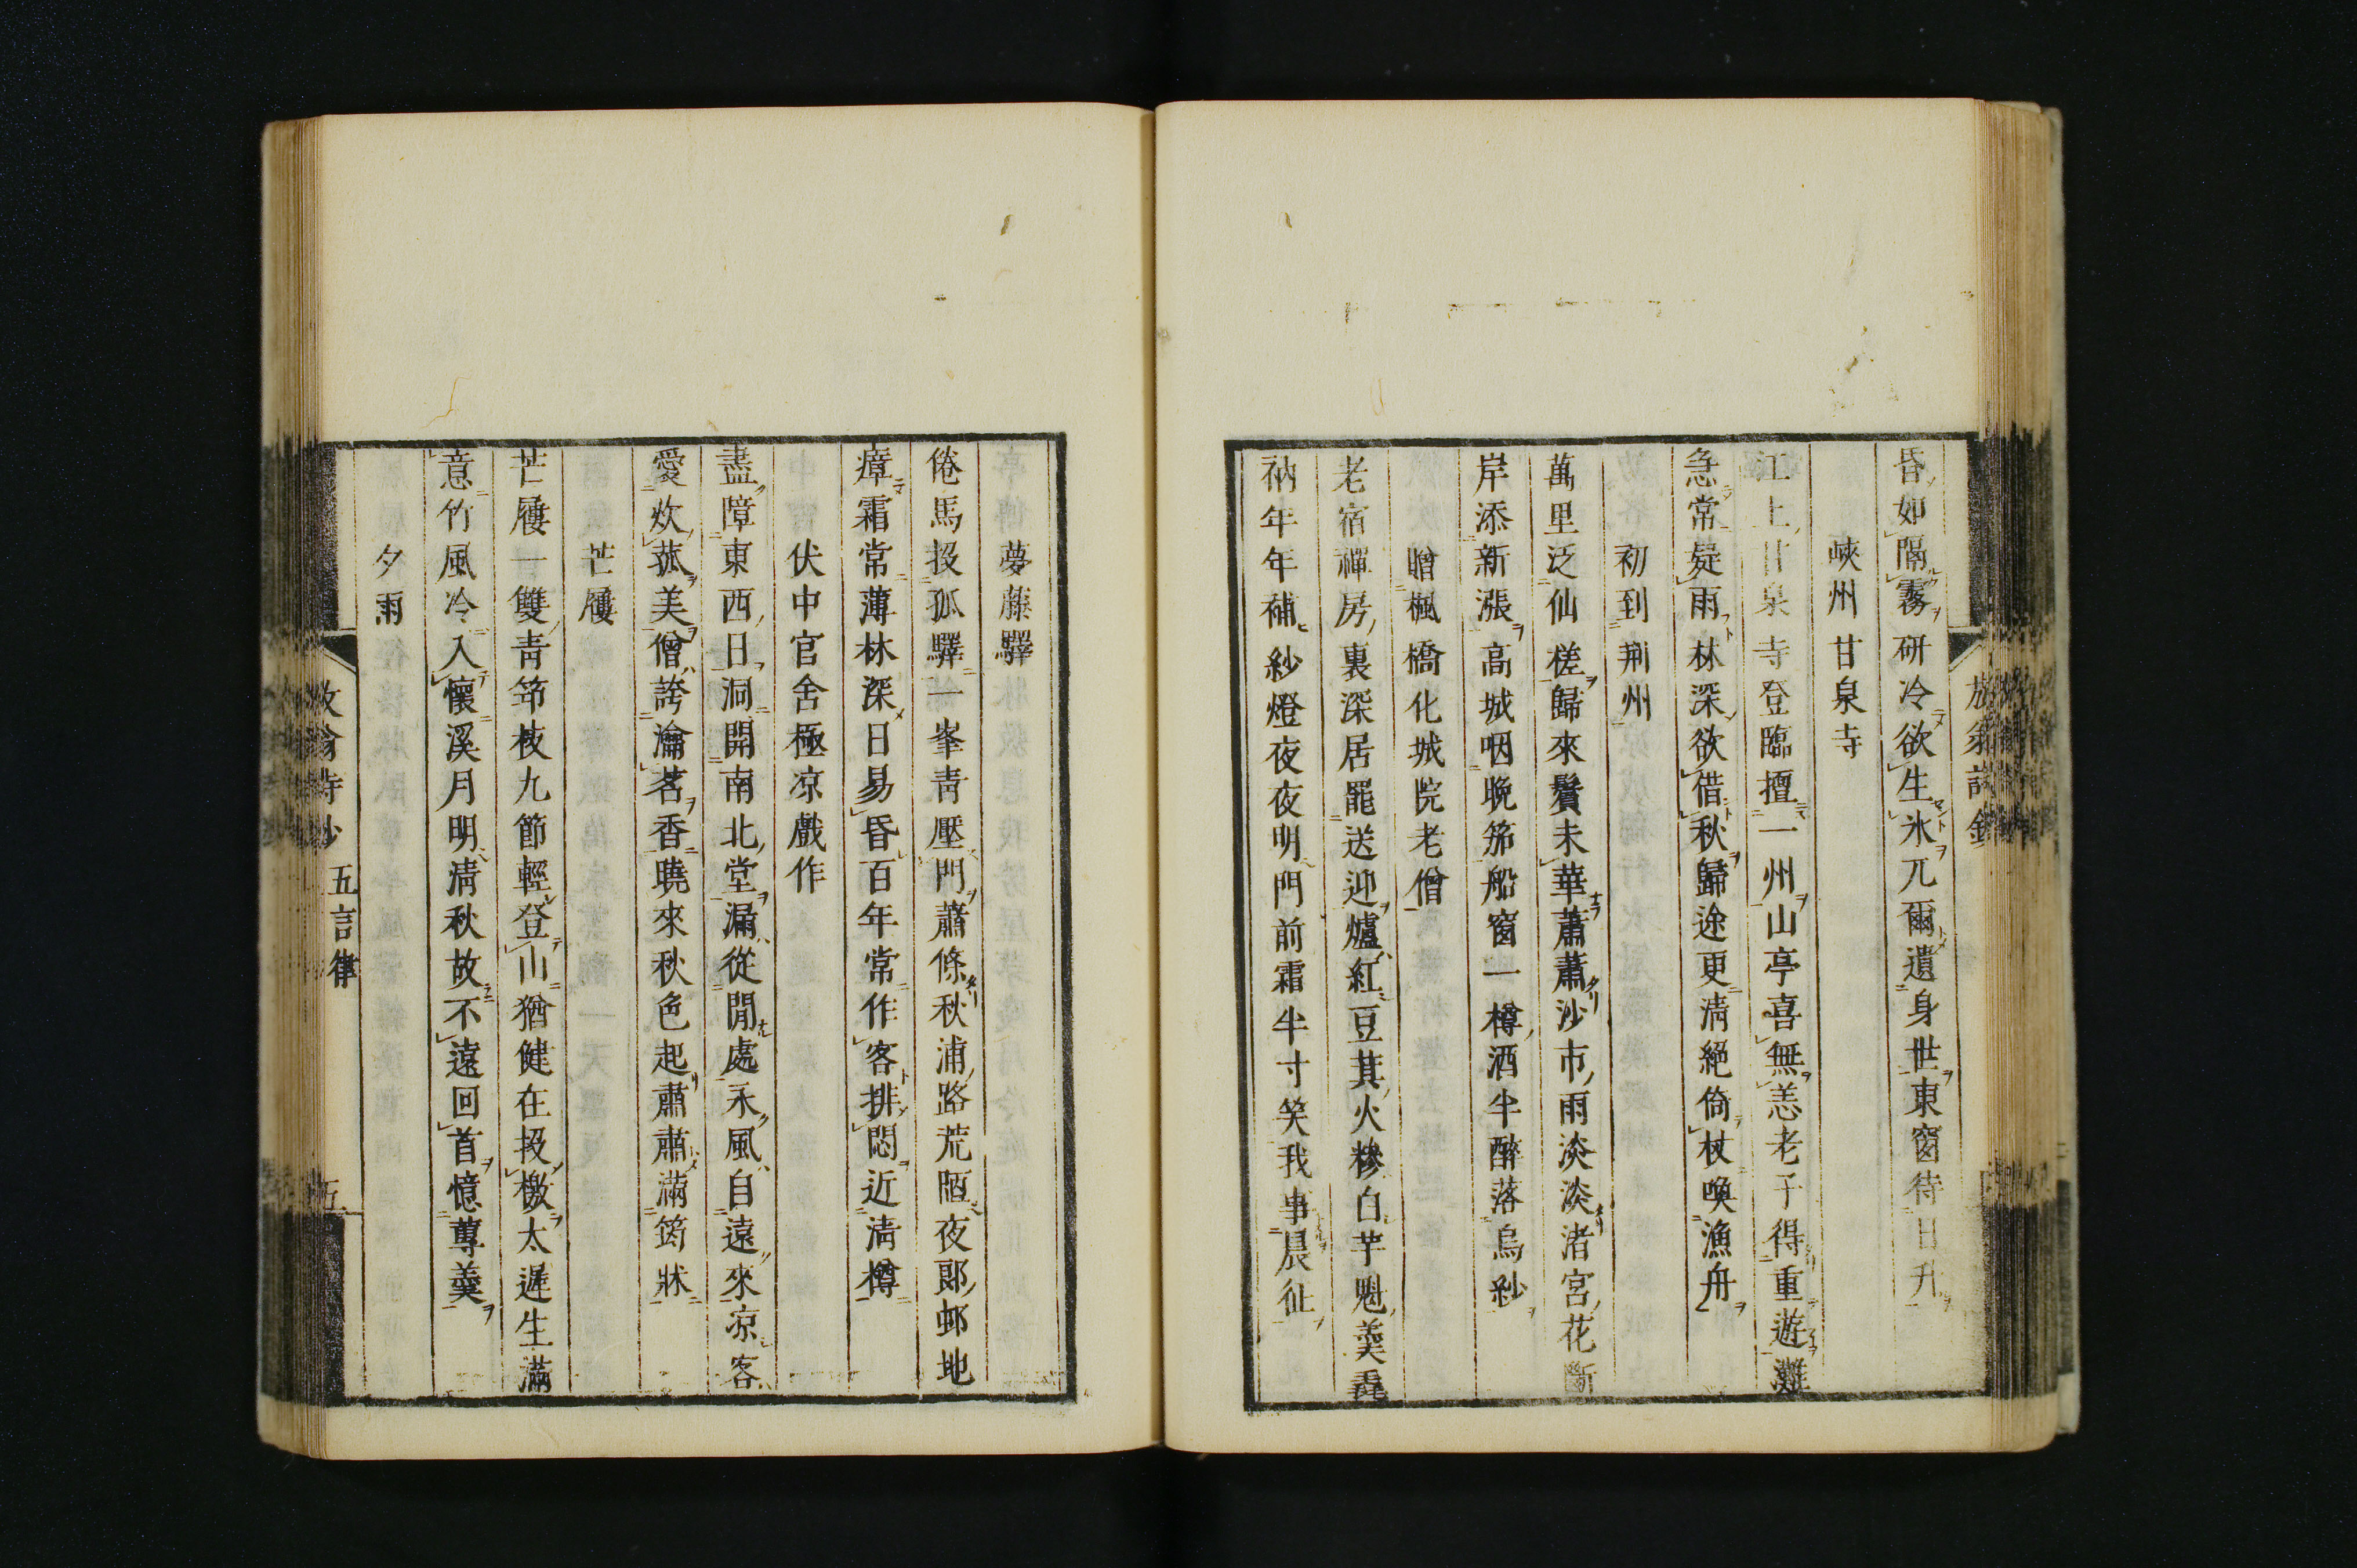 昏如隔霧研冷欲生氷兀爾遺身世東窗待日升
峽州甘泉寺
江上甘泉寺登臨擅一州山亭喜無恙老子得重遊灘
急常疑雨林深欲借秋歸途更清絕倚杖喚漁舟
初到荊州
萬里泛仙槎歸來鬢未華蕭蕭沙市雨淡淡渚宮花斷
岸添新漲高城咽晚笳船窗一樽酒半醉落烏紗
贈楓橋化城院老僧
老宿禪房裏深居罷送迎爐紅豆萁火糝白芋魁羹毳
衲年年補紗燈夜夜明門前霜半寸笑我事晨征
夢藤驛
倦馬投孤驛一峯靑壓門蕭條秋浦路荒陋夜郞邨地
瘴霜常薄林深日易昏百年常作客排悶近清樽
伏中官舍極凉戲作
盡障東西日洞開南北堂漏從閒處永風自遠來凉客
愛炊菰美僧誇瀹茗香曉來秋色起肅肅滿筠牀
芒屨
芒屨一雙靑笻枝九節輕登山猶健在投檄太遲生滿
意竹風冷入懷溪月明清秋故不遠回首憶蓴羹
夕雨
放翁詩鈔 五言律 五